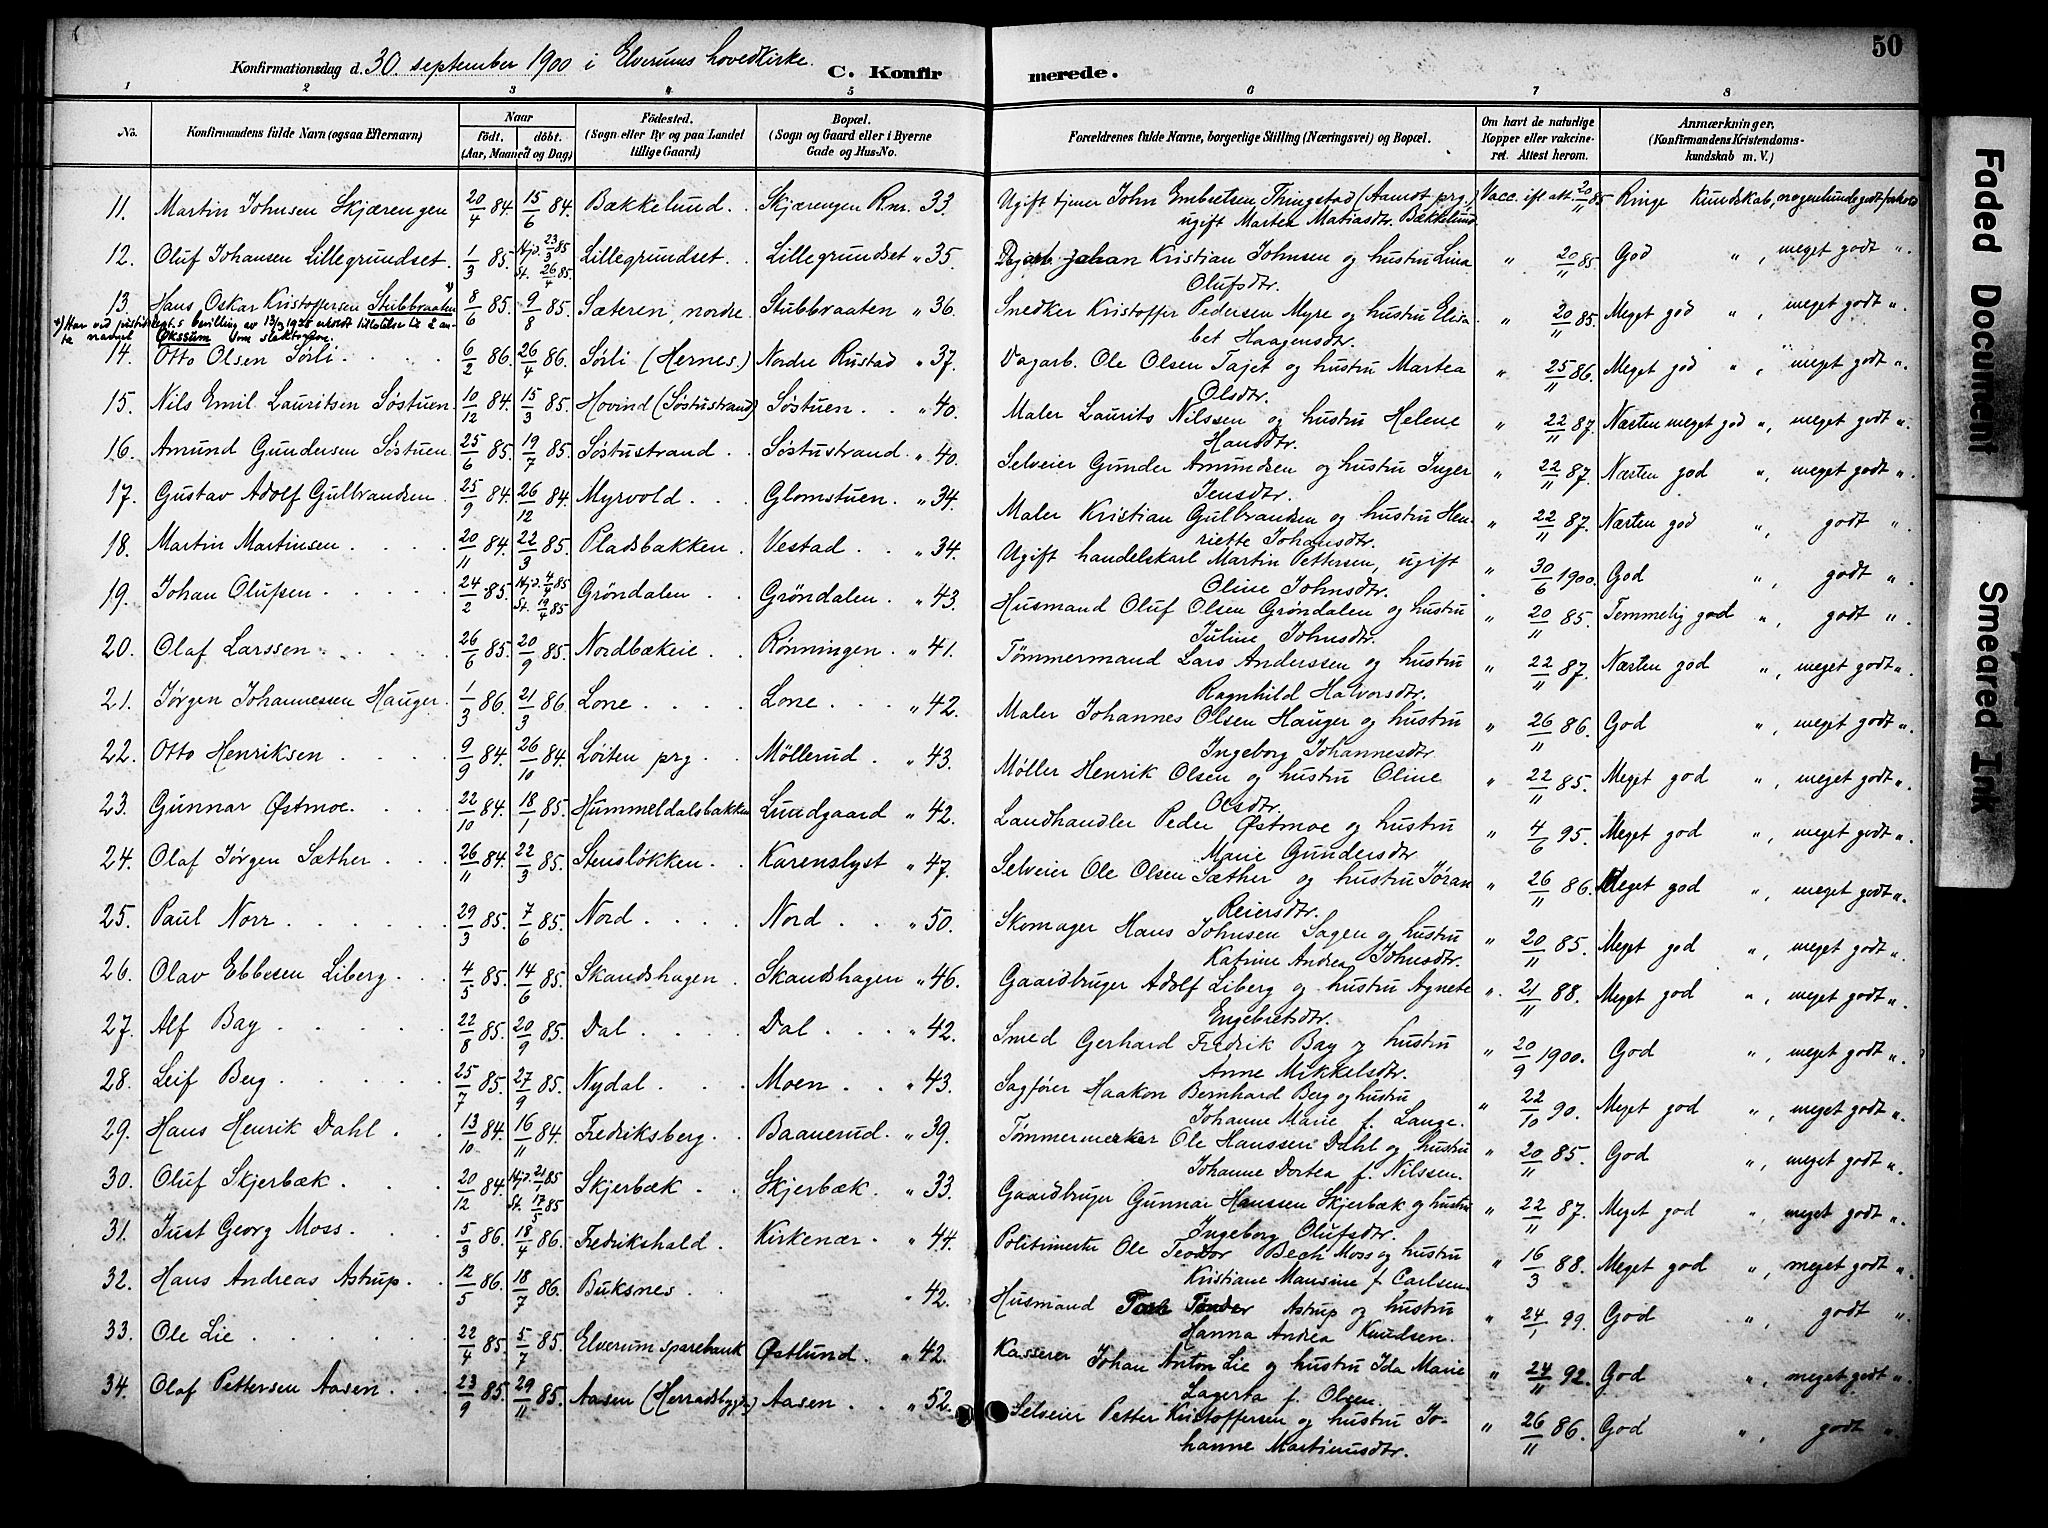 50
Konfirmationsdag d. 30. september 1900 i Elverums hovedkirke.
C. Konfirmerede.
1 2 3 4 5 6 7 8
No. Konfirmandens fulde Navn (ogsaa Efternavn) Naar født. døbt. (Aar, Maaned og Dag) Fødested. (Sogn eller By og paa Landet tillige Gaard) Bopæl. (Sogn og Gaard eller i Byerne Gade og Hus-No. Forældrenes fulde Navne, borgerlige Stilling (Næringsvei) og Bopæl. Om havt de naturlige Kopper eller vakcineret. Attest herom. Anmærkninger. (Konfirmandens Kristendomskundskab m. V.)
11. Martin Johnsen Skjærengen 20/4 84. 15/6 84. Bækkelund. Skjærengen Rnr. 33. Ugift tjener John Embretsen Thingstad (Aamot prg.) Vacc. ifl. att. 20/11 85 Ringe Kundskab, nogenlunde godt forhold
ugift Martea Matiasdtr. Bækkelund
12. Oluf Johansen Lillegrundset. 1/3 85. Hjd. 23/3 85 St. 26/4 85 Lillegrundset. Lillegrundset " 35. Dagarb. Johan Kristian Johnsen og hustru Lina " 20/11 85. God " , meget godt ".
Olufsdtr.
13. Hans Oskar Kristoffersen Stubbraaten *) 8/6 85. 9/8 85. Sæteren, nordre Stubbraaten " 36. Snedker Kristoffer Pedersen Myre og hustru Elisa " 20/11 85. Meget god " , meget godt ".
bet Haagensdtr.
*) Har ved justisdept.s bevilling av 13/3 1925 erholdt tillatelse til å an-
ta navnet Økssum som slektsnavn.
14. Otto Olsen Sørli. 6/2 86. 26/4 86. Sørli (Hernes.) Nordre Rustad " 37. Dagarb. Ole Olsen Tajet og hustru Martea " 25/11 86. Meget god " , meget godt ".
Olsdtr.
15. Nils Emil Lauritsen Søstuen. 10/12 84. 15/3 85. Hovind (Søstustrand) Søstuen. " 40. Maler Laurits Nilssen og hustru Helene " 22/11 87. Næsten meget god ", meget godt ".
Hansdtr.
16. Amund Gundersen Søstuen. 25/6 85. 19/7 85. Søstustrand. Søstustrand. " 40. Selveier Gunder Amundsen og hustru Inger " 22/11 87. Næsten god ", meget godt ".
Jensdtr.
17. Gustav Adolf Gulbrandsen. 25/9 84. 26/12 84. Myrvold. Glomstuen. " 34. Maler Kristian Gulbrandsen og hustru Hen- " 22/11 87. Næsten god " godt ".
riette Johansdtr.
18. Martin Martinsen. 20/11 84. 22/3 85. Pladsbakken. Vestad. " 34. Ugift handelskarl Martin Pettersen, ugift " 30/6 1900. God ", godt ".
Oline Johnsdtr.
19. Johan Olufsen. 24/2 85. Hjd. 4/4 85 St. 19/4 85 Grøndalen. Grøndalen. " 43. Husmand Oluf Olsen Grøndalen og hustru " 20/11 85. Temmelig god ", godt ".
Juline Johnsdtr.
20. Olaf Larssen. 26/6 85. 20/9 85. Nordbækeie. Rønningen. " 41. Tømmermand Lars Anderssen og hustru " 22/11 87. Næsten god ", meget godt ".
Ragnhild Halvorsdtr.
21. Jørgen Johannessen Hauger. 1/3 86. 21/3 86. Lone. Lone. " 42. Maler Johannes Olsen Hauger og hustru " 26/11 86. God ", meget godt ".
Ingeborg Johannesdtr
22. Otto Henriksen 9/9 84. 26/10 84. Løiten prg. Møllerud. " 43. Møller Henrik Olsen og hustru Oline " 22/11 85. Meget god ", meget godt ".
Olsdtr.
23. Gunnar Østmoe. 22/10 84. 18/1 85. Hummeldalsbakken Lundgaard " 42. Landhandler Peder Østmoe og hustru " 4/6 95. Meget god ", meget godt ".
Marie Gundersdtr
24. Olaf Jørgen Sæther. 26/11 84. 22/3 85. Stensløkken. Karenslyst " 47. Selveier Ole Olsen Sæther og hustru Jøran " 26/11 86. Meget god ", meget godt ".
Reiersdtr.
25. Paul Norr. 29/3 85. 7/6 85. Nord. Nord. " 50. Skomager Hans Johnsen Sagen og hustru " 20/11 85. Meget god ", meget godt ".
Katrine Andrea Johnsdtr.
26. Olav Ebbesen Liberg. 4/5 85. 14/6 85. Skandshagen. Skandshagen " 46. Gaardbruger Adolf Liberg og hustru Agnete ". 21/11 88. Meget god ", meget godt ".
Engebretsdtr.
27. Alf Bay. 22/8 85. 20/9 85. Dal. Dal. " 42. Smed Gerhard Fredrik Bay og hustru " 20/9 1900. God ", meget godt ".
Anne Mikkelsdtr.
28. Leif Berg. 25/7 85. 27/9 85. Nydal. Moen. " 43. Sagfører Haakon Bernhard Berg og hustru " 22/10 90. Meget god ", meget godt ".
Johanne Marie f. Lange.
29. Hans Henrik Dahl. 13/10 84. 16/11 84. Fredriksberg. Baanerud. " 39. Tømmermerker Ole Hanssen Dahl og hustru " 20/11 85. God ", meget godt ".
Johanne Dortea f. Nilssen.
30. Oluf Skjerbæk. 20/12 84. Hjd. 21/1 85 St. 17/5 85 Skjerbæk. Skjerbæk. " 33. Gaardbruger Gunnar Hanssen Skjerbæk og hustru " 22/11 87. Meget god ", meget godt ".
Ingeborg Olufsdtr.
31. Just Georg Moss. 5/3 86. 18/4 86. Fredrikshald. Kirkenær. " 44. Politimester Ole Teodor Bech Moss og hustru " 16/3 88. Meget god ", meget godt ".
Kristiane Mansine f. Carlsen.
32. Hans Andreas Astrup. 12/5 86. 18/7 86. Buksnes. " 42. Husmand Tønder Astrup og hustru " 24/1 99. God ", godt ".
Hanna Andrea Knudsen.
33. Ole Lie. 22/4 85. 5/7 85. Elverum sparebank Østlund. " 42. Kasserer Johan Anton Lie og hustru Ida Marie " 24/11 92. God ", meget godt ".
Lagerta f. Olsen.
34. Olaf Pettersen Aasen. 23/9 85. 29/11 85. Aasen (Herradsbygd.) Aasen. " 52. Selveier Petter Kristoffersen og hustru Jo- " 26/11 86. God ", godt ".
hanne Martinusdtr.
Faded Document
Smeared Ink